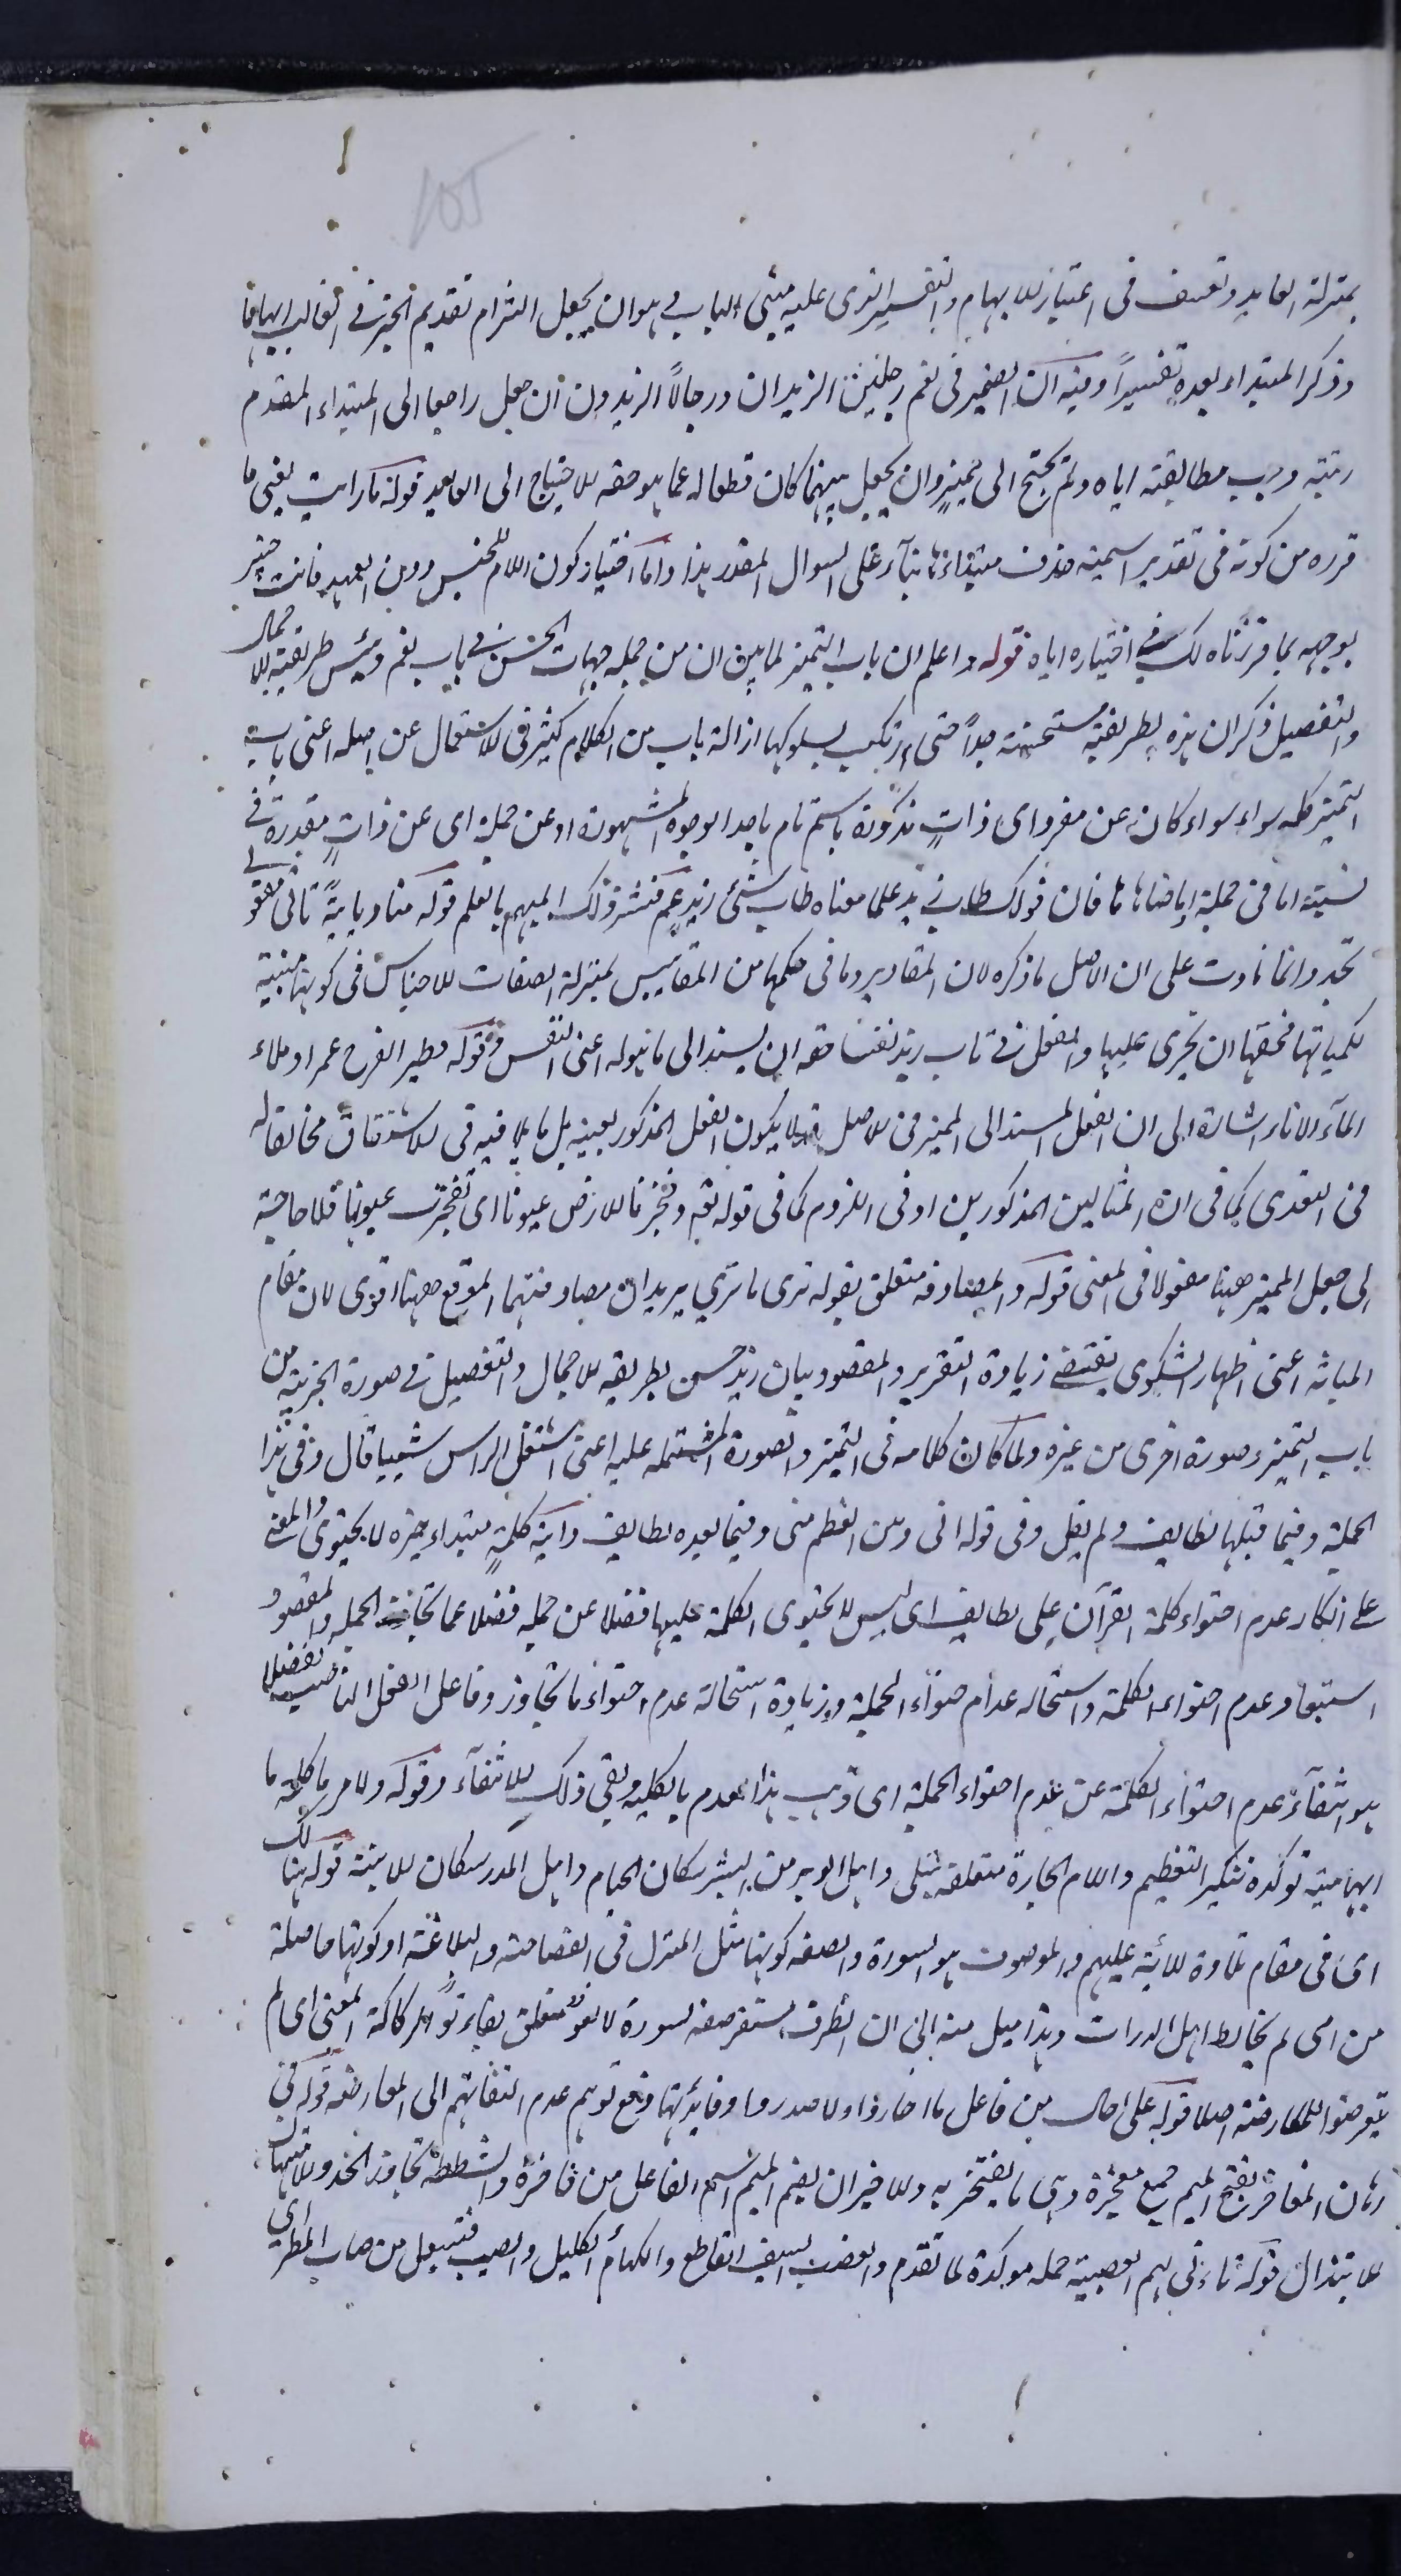 105
بمنزلة العايد وتعسف فى اعتبار الابهام والتفسير الذى عليه مبنى الباب وهو ان يجعل التزام تقديم الخبر فى الغالب ابهاما
وذكر المبتداء بعده تفسيراً وفيه ان الضمير فى نعم رجلين الزيدان ورجالاً الزيدون ان جعل راجعا الى المبتداء المقدم
رتبته وجب مطابقته اياه ولم يحتج الى مميز وان يجعل مبهما كان قطعا له عما هو حقه للاحتياج الى العايد قوله ما رايت يعنى ما
قرره من كونه فى تقدير اسمية حذف مبتداءها بناء على السوال المقدر هذا واما اختيار كون اللام للجنس دون العهد فانت خبير
بوجهه بما قررناه لك فى اختياره اياه قوله واعلم ان باب التميز لما بين ان من جملة جهات الحسن فى باب نعم وبئس طريقة الاجمال
والتفصيل ذكر ان هذه الطريقة مستحسنة جداً حتى ارتكب لسلوكها ازالة باب من الكلام كثير فى الاستعمال عن اصله اعنى باب
التميز كله سواء سواء كان عن مفرد اى ذات مذكورة باسم تام باحد الوجوه المشهورة او عن جملة اى عن ذات مقدرة فى
نسبة اما فى جملة او ما ضاهاها فان قولك طاب زيد علما معناه طاب شئ زيد ثم فسر ذلك المبهم بالعلم قوله مناديا بيةً ثانى مفعولى
تجد وانما نادت على ان الاصل ما ذكره لان المقادير وما فى حكمها من المقاييس بمنزلة الصفات للاجناس فى كونها مبنية
لكمياتها فحقها ان تجرى عليها والفعل فى طاب زيد نفسا حقه ان يسند الى ما هو له اعنى النفس وقوله وطير الفرح عمرا وملاء
الماء الاناء اشارة الى ان الفعل المسند الى المميز فى الاصل قد لا يكون الفعل المذكور بعينه بل ما يلاقيه فى الاشتقاق مخالفا له
فى التعدى كما فى المثالين المذكورين او فى اللزوم كما فى قوله تع وفجرنا الارض عيونا اى تفجرت عيونها فلا حاجة
الى جعل المميز ههنا مفعولا فى المعنى قوله والمصادفة متعلق بقوله ترى ما ترى يريد ان مصادفتهما الموقع ههنا اقوى لان مقام
المباثة اعنى اظهار الشكوى يقتضى زيادة التقرير والمقصود بيان زيد حسن طريقة الاجمال والتفصيل فى صورة الجزئية من
باب التميز وصورة اخرى من غيره ولما كان كلامه فى التميز والصورة المشتملة عليه اعنى اشتعل الراس شيبا قال وفى هذا
الجملة وفيما قبلها لطايف ولم يقل وفى قوله انى وهن العظم منى وفيما بعده لطايف واية كلمةٍ مبتداء خبره لا يحتوى والمعنى
على انكار عدم احتواء كلمة القرآن على لطايف اى ليس لا يحتوى الكلمة عليها فضلا عن جملة فضلا عما تجاوز الجملة والمقصود
استبعاد عدم احتواء الكلمة واستحالة عدم احتواء الجملة وزيادة استحالة عدم احتواء ما تجاوز وفاعل الفعل الناصب لفضلا
هو انتفاء عدم احتواء الكلمة عن عدم احتواء الجملة اى ذهب هذا العدم بالكلية وبقى ذلك الانتفاء وقوله ولامر ما كلمة ما
ابهامية توكده تنكير التعظيم واللام الجارة متعلقة بتلى واهل الوبر من البشر سكان الخيام واهل المدر سكان الابنية قوله هنالك
اى فى مقام تلاوة الآية عليهم والموصوف هو السورة والصفة كونها مثل المنزل فى الفصاحة والبلاغة او كونها حاصلة
من امى لم يخالط اهل الدرايات وهذا ميل منه الى ان الظرف مستقر صفة لسورة لا لغو متعلق بفأتوا لركاكة المعنى اى لم
يتعرضوا للمعارضة اصلا قوله على احال من فاعل ما احاروا ولا صدروا وفائدتها دفع توهم عدم التفاتهم الى المعارضة قوله فى
رهان المفاخر بفتح الميم جمع مفخرة وهى ما يفتخر به وللاخير ان بضم الميم اسم الفاعل من فاخره والشطط تجاوز الحد والتهالك
الابتذال قوله ثاء فى لهم العصبية جملة موكدة لما تقدم والعضب السيف القاطع والكهام الكليل والصيب فيعل من صاب المطر اى